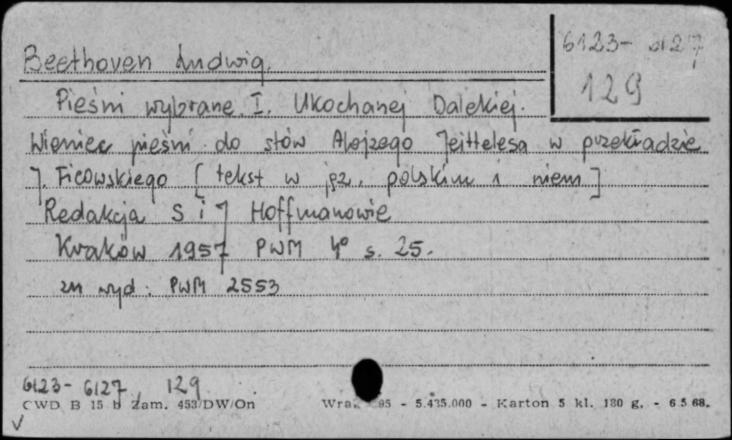 6123- 6127
129
Beethoven Ludwig.
Pieśni wybrane. I. Ukochanej Dalekiej.
Wieniec pieśni do słów Alojzego Jeittelesa w przekładzie
J. Ficowskiego [tekst w jęz. polskim i niem]
Redakcja S i J Hoffmanowie
Kraków 1957 PWM 4° s. 25.
zn wyd: PWM 2553
6123- 6127 129
CWD B 15 b Zam. 453/DW/On 95 - 5.435.000 - Karton 5 kl. 180 g. - 6.5.68.